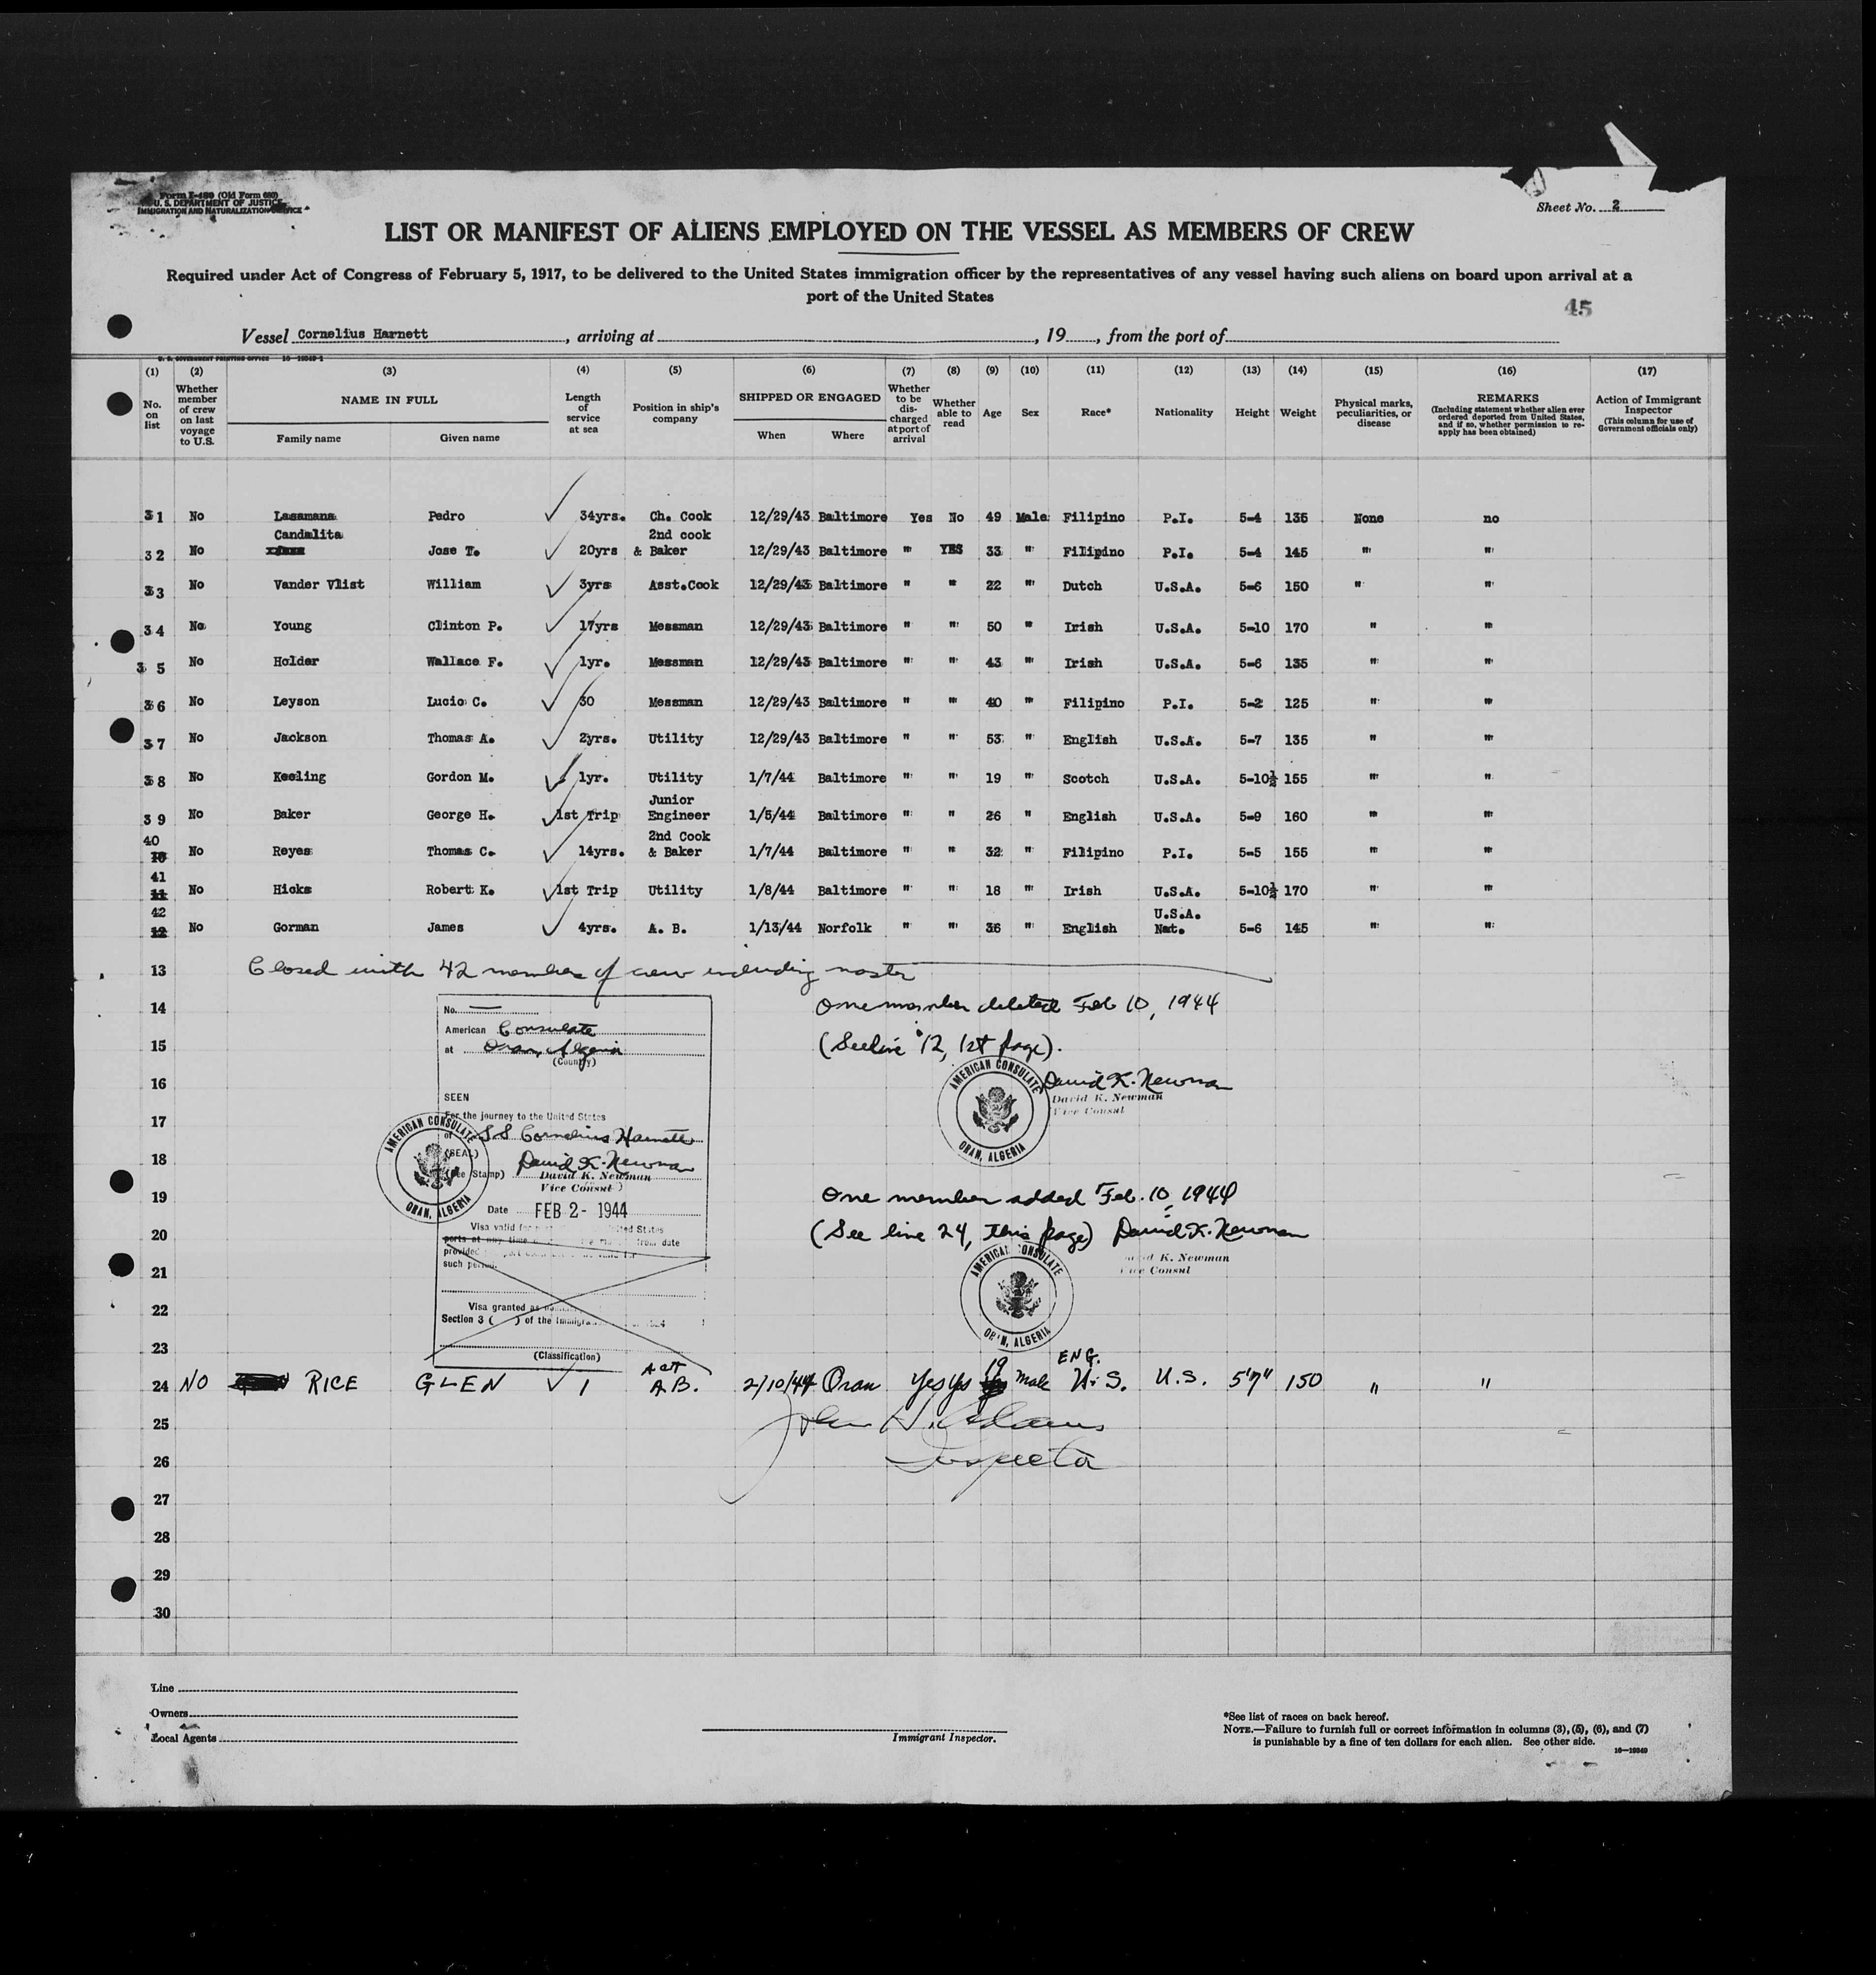 Form I-480 (Old Form 680)
U. S. DEPARTMENT OF JUSTICE
IMMIGRATION AND NATURALIZATION SERVICE
Sheet No. 2
LIST OR MANIFEST OF ALIENS EMPLOYED ON THE VESSEL AS MEMBERS OF CREW
Required under Act of Congress of February 5, 1917, to be delivered to the United States immigration officer by the representatives of any vessel having such aliens on board upon arrival at a
port of the United States
45
Vessel Cornelius Harnett, arriving at , 19 , from the port of
U. S. GOVERNMENT PRINTING OFFICE 16-19349-1
(1) (2) (3) (4) (5) (6) (7) (8) (9) (10) (11) (12) (13) (14) (15) (16) (17)
No. on list
Whether member of crew on last voyage to U.S.
NAME IN FULL
Family name Given name
Length of service at sea
Position in ship's company
SHIPPED OR ENGAGED
When Where
Whether to be discharged at port of arrival
Whether able to read
Age
Sex
Race*
Nationality
Height
Weight
Physical marks, peculiarities, or disease
REMARKS
(Including statement whether alien ever ordered deported from United States, and if so, whether permission to re-apply has been obtained)
Action of Immigrant Inspector
(This column for use of Government officials only)
31 No Lasamana Pedro 34yrs. Ch. Cook 12/29/43 Baltimore Yes No 49 Male Filipino P.I. 5-4 135 None no
Candalita 2nd cook
32 No Jose T. 20yrs & Baker 12/29/43 Baltimore " YES 33 " Filipino P.I. 5-4 145 " "
33 No Vander Vlist William 3yrs Asst.Cook 12/29/43 Baltimore " " 22 " Dutch U.S.A. 5-6 150 " "
34 No Young Clinton P. 17yrs Messman 12/29/43 Baltimore " " 50 " Irish U.S.A. 5-10 170 " "
35 No Holder Wallace F. 1yr. Messman 12/29/43 Baltimore " " 43 " Irish U.S.A. 5-6 135 " "
36 No Leyson Lucio C. 30 Messman 12/29/43 Baltimore " " 40 " Filipino P.I. 5-2 125 " "
37 No Jackson Thomas A. 2yrs. Utility 12/29/43 Baltimore " " 53 " English U.S.A. 5-7 135 " "
38 No Keeling Gordon M. 1yr. Utility 1/7/44 Baltimore " " 19 " Scotch U.S.A. 5-10½ 155 " "
Junior
39 No Baker George H. 1st Trip Engineer 1/5/44 Baltimore " " 26 " English U.S.A. 5-9 160 " "
40 2nd Cook
10 No Reyes Thomas C. 14yrs. & Baker 1/7/44 Baltimore " " 32 " Filipino P.I. 5-5 155 " "
41
11 No Hicks Robert K. 1st Trip Utility 1/8/44 Baltimore " " 18 " Irish U.S.A. 5-10½ 170 " "
42 U.S.A.
12 No Gorman James 4yrs. A. B. 1/13/44 Norfolk " " 36 " English Nat. 5-6 145 " "
13 Closed with 42 members of crew including master
14 One member deleted Feb 10, 1944
15 (See line 12, 1st page).
16 David K. Newman
David K. Newman
Vice Consul
AMERICAN CONSULATE
ORAN, ALGERIA
No.
American Consulate
at Oran, Algeria
(County)
SEEN
For the journey to the United States
of S.S Cornelius Harnett
(SEAL)
(Fee Stamp) David K. Newman
David K. Newman
Vice Consul
Date FEB 2 - 1944
AMERICAN CONSULATE
ORAN, ALGERIA
Visa valid for United States
ports at any time from date
provided
such period.
Visa granted as
Section 3 ( ) of the Immigra
(Classification)
17
18
19 One member added Feb. 10, 1944
20 (See line 24, this page) David K. Newman
David K. Newman
Vice Consul
AMERICAN CONSULATE
ORAN, ALGERIA
21
22
23
Act 19 ENG.
24 NO RICE GLEN 1 A.B. 2/10/44 Oran Yes Yes Male U.S. U.S. 5'7" 150 " "
25 John H. Adams
26 Inspector
27
28
29
30
Line
Owners
Local Agents
Immigrant Inspector.
*See list of races on back hereof.
NOTE.—Failure to furnish full or correct information in columns (3), (5), (6), and (7)
is punishable by a fine of ten dollars for each alien. See other side.
16—19349